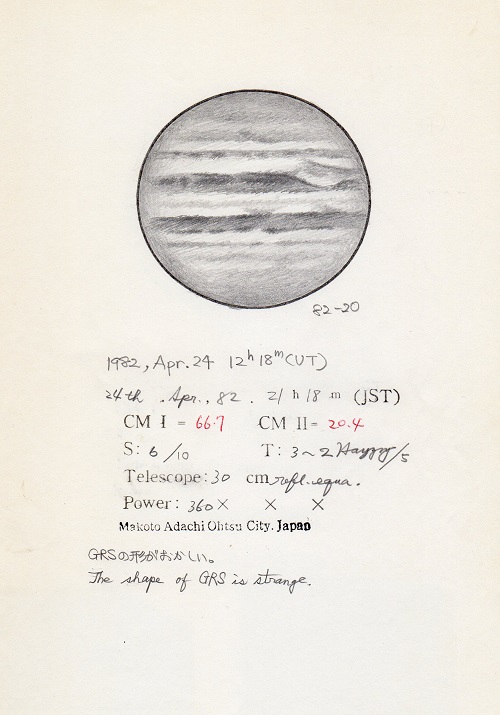 82-20
1982, Apr. 24 12h 18m (UT)
24th . Apr., 82 . 21 h 18 m (JST)
CM I = 66.7 CM II= 20.4
S: 6/10 T: 3~2 Hazy/5
Telescope: 30 cm refl. equa.
Power: 360× × ×
Makoto Adachi Ohtsu City. Japan
GRSの形がおかしい。
The shape of GRS is strange.